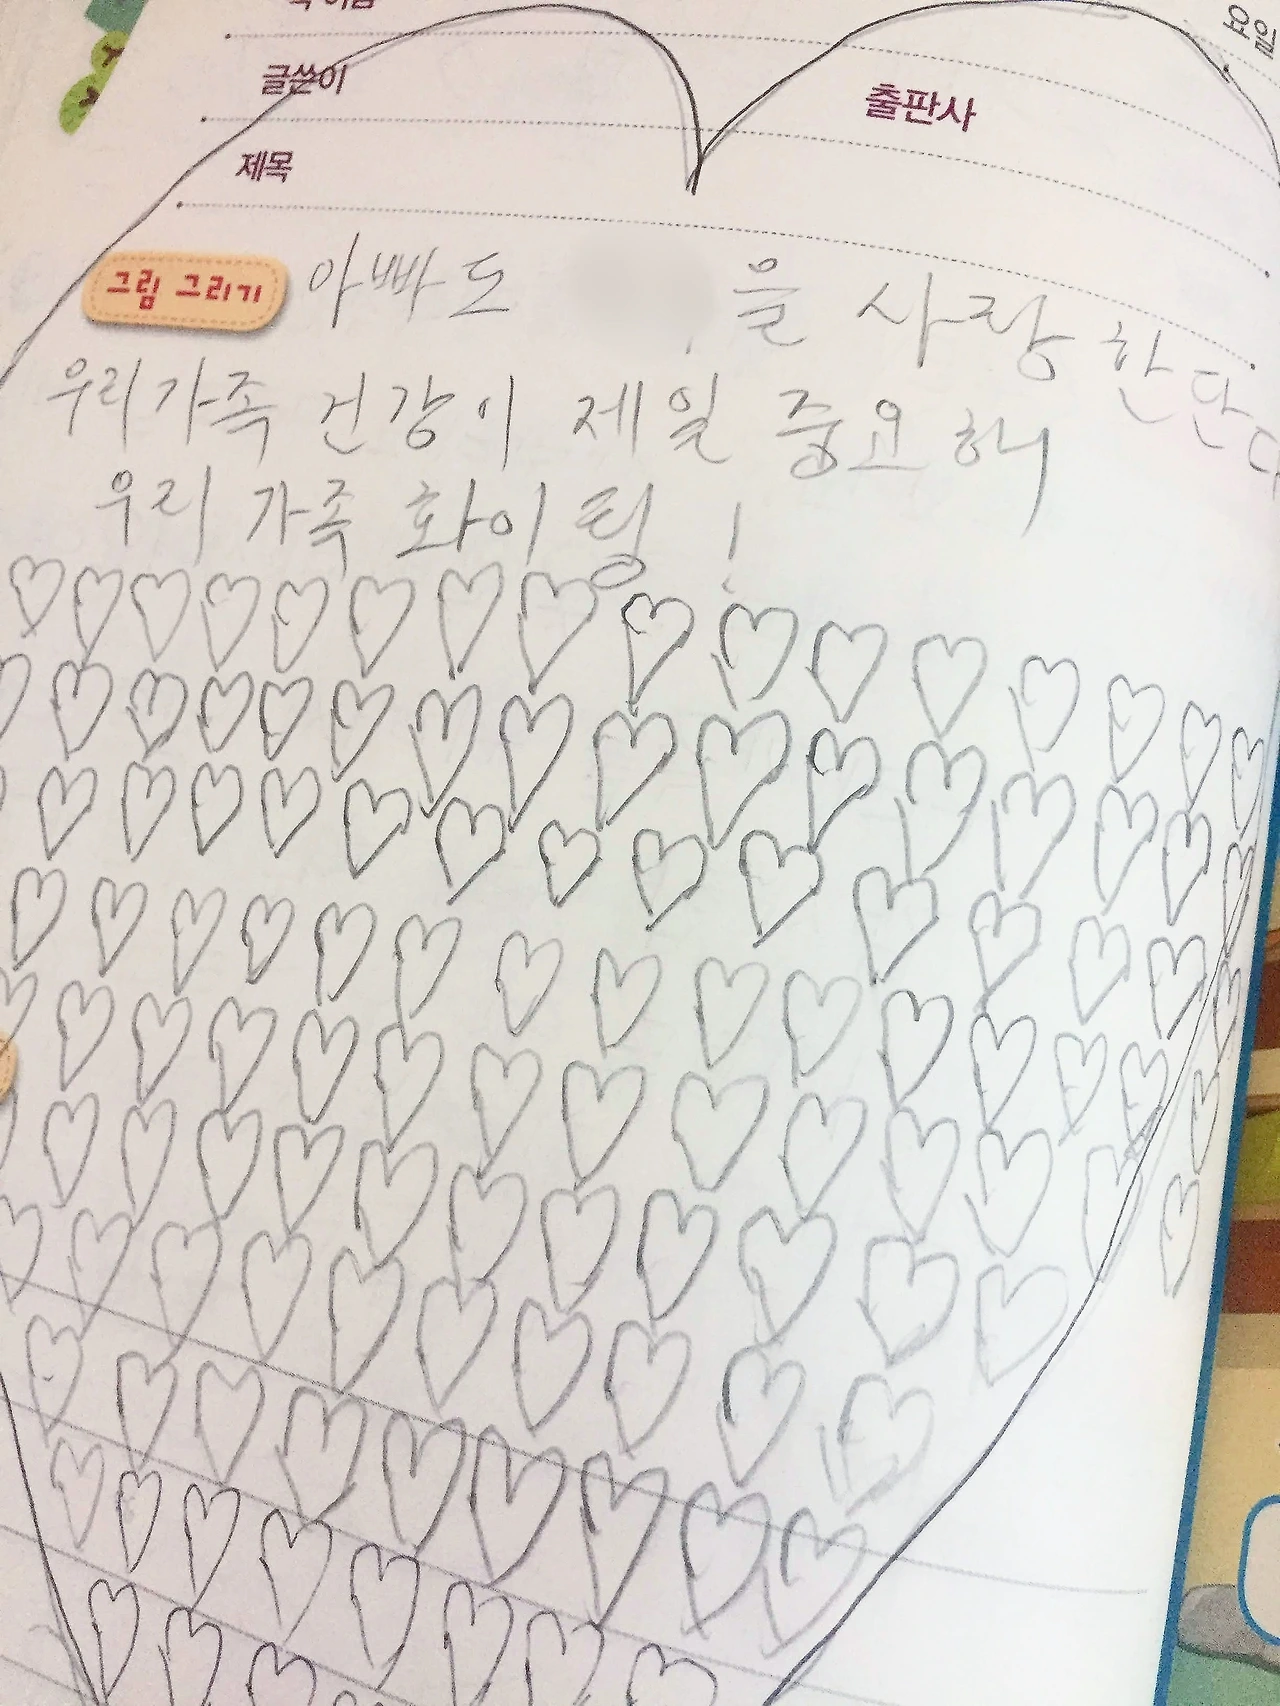 요일
글쓴이
출판사
제목
그림 그리기
아빠도 을 사랑한단다
우리가족 건강이 제일 중요해
우리 가족 화이팅!